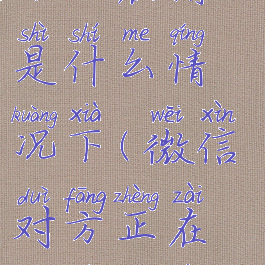 shì shí me qíng
是什么情
kuàng xià wēi xìn
况下(微信
duì fāng zhèng zài
对方正在